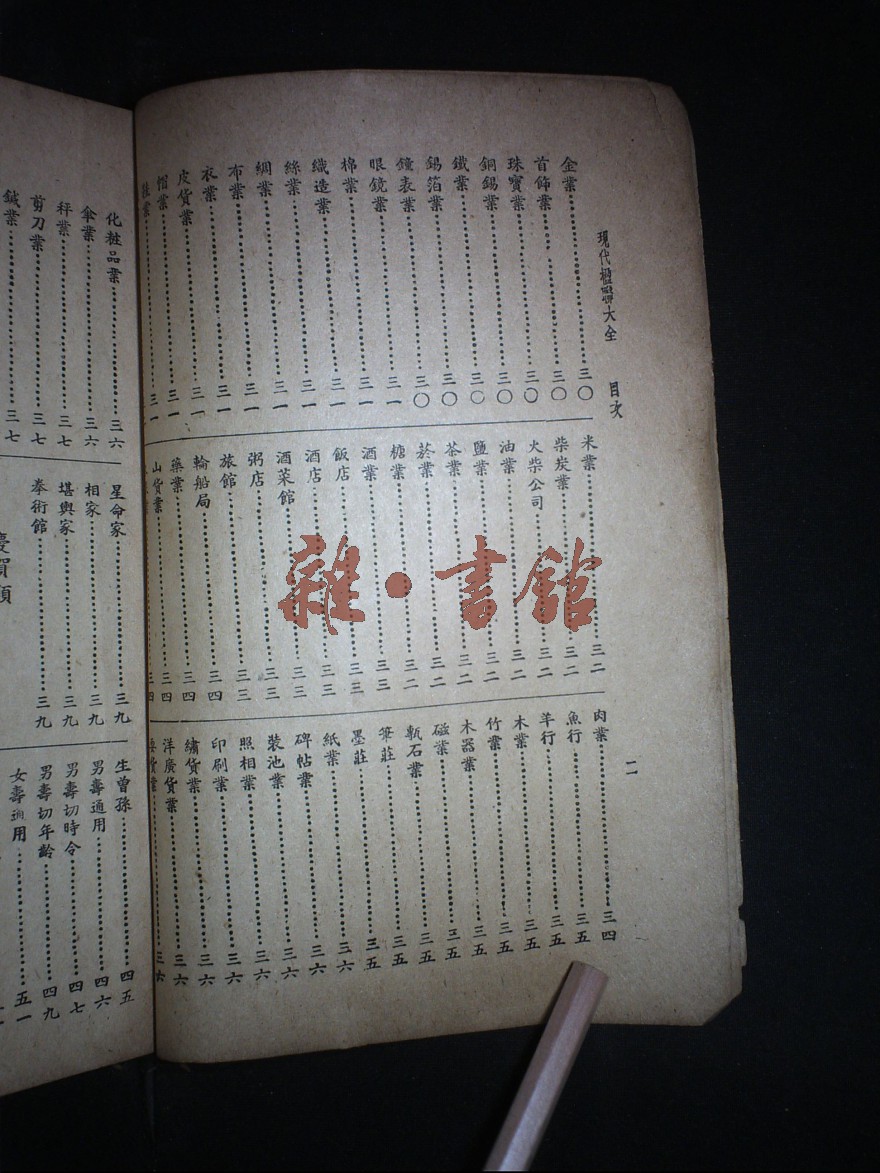 現代楹聯大全　目次
二
金業三〇
首飾業三〇
珠寶業三〇
銅錫業三〇
鐵業三〇
錫箔業三〇
鐘表業三〇
眼鏡業三一
棉業三一
織造業三一
絲業三一
綢業三一
布業三一
衣業三一
皮貨業三一
帽業三一
鞋業三一
米業三二
柴炭業三二
火柴公司三二
油業三二
鹽業三二
茶業三二
菸業三二
糖業三二
酒業三三
飯店三三
酒店三三
酒菜館三三
粥店三三
旅館三四
輪船局三四
藥業三四
山貨業三四
肉業三四
魚行三五
羊行三五
木業三五
竹業三五
木器業三五
磁業三五
甎石業三五
筆莊三五
墨莊三五
紙業三六
碑帖業三六
裝池業三六
照相業三六
印刷業三六
繡貨業三六
洋廣貨業三六
貨業三六
化粧品業三六
傘業三六
秤業三七
剪刀業三七
鍼業三七
星命家三九
相家三九
堪輿家三九
拳術館三九
慶賀類
生曾孫四五
男壽通用四六
男壽切時令四七
男壽切年齡四九
女壽通用五一
雜·書館